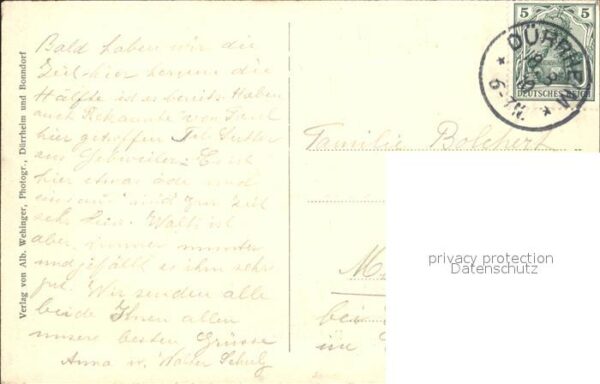 Bald haben wir die
Zeit hier herum die
Hälfte ist es bereits. Haben
auch Bekannte von
hier getroffen
aus Gebweiler. Es ist
hier etwas öde und
einsam und zur Zeit
sehr Walti ist
aber immer munter
und gefällt es ihm sehr
gut. Wir senden alle
beide Ihnen allen
unser besten Grüsse
Anna u. Walter Schulz
Verlag von Alb. Wehinger, Photogr., Dürrheim und Bonndorf
5 5
DEUTSCHES REICH
* DÜRRHEIM *
6-7N.
Familie Bolchert
M
bei
im
privacy protection
Datenschutz